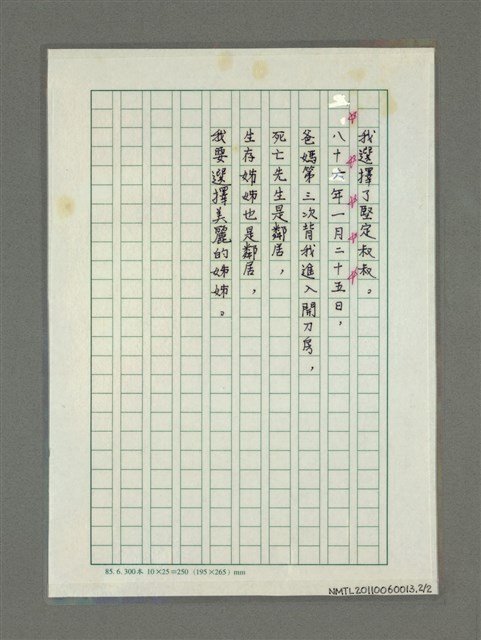 我選擇了堅定叔叔。
八十六年一月二十五日，
爸媽第三次背我進入開刀房，
死亡先生是鄰居，
生存姊姊也是鄰居，
我要選擇美麗的姊姊。
85. 6. 300本 10×25=250（195×265）mm
NMTL20110060013.2/2